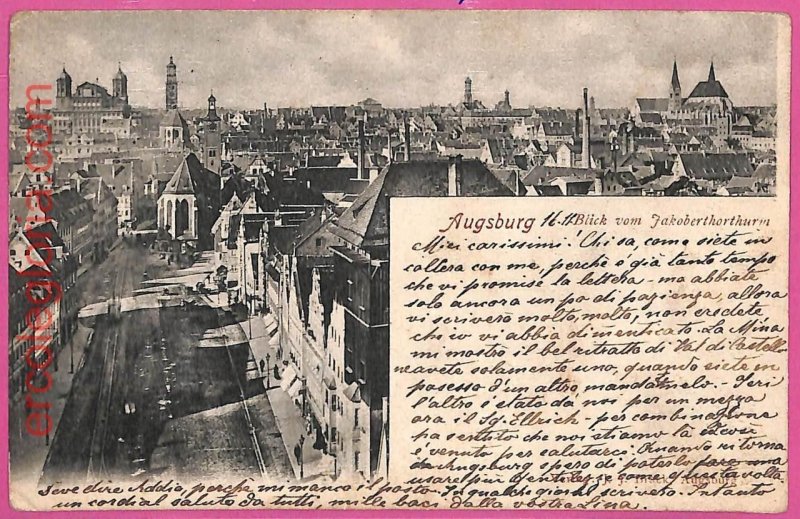 ercolegloria.com
Augsburg 11.11. Blick vom Jakoberthorthurm
Miei carissimi! Chi sa, come siete in
collera con me, perchè è già tanto tempo
che vi promise la lettera - ma abbiate
solo ancora un po di pazienza, allora
vi scriverò molto, molto, non credete
ch'io vi abbia dimenticato. La Mina
mi mostrò il bel ritratto di Val di Castello
ne avete solamente uno, quando siete in
possesso d'un altro mandatemelo. - Jeri
l'altro è stato da noi per un mezza
ora il Sg. Ellrich - per combinazione
ha sentito che noi stiamo là e così
è venuto per salutarci. Quando ritorna
da Augsburg spero di poterlo fare una
usare più gentilezze come questa volta
devo dire Addio, perche mi manca il posto. In qualche giorno scrivero. Intanto
un cordial saluto da tutti, mille baci dalla vostra Lina.
Augsburg